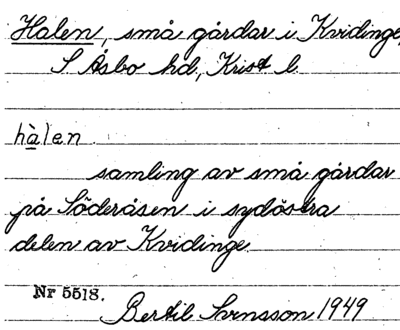 Halen, små gårdar i Kvidinge,
S. Åsbo hd, Krist l.
hàlen
samling av små gårdar
på Söderåsen i sydöstra
delen av Kvidinge
Nr 5518.
Bertil Svensson 1949